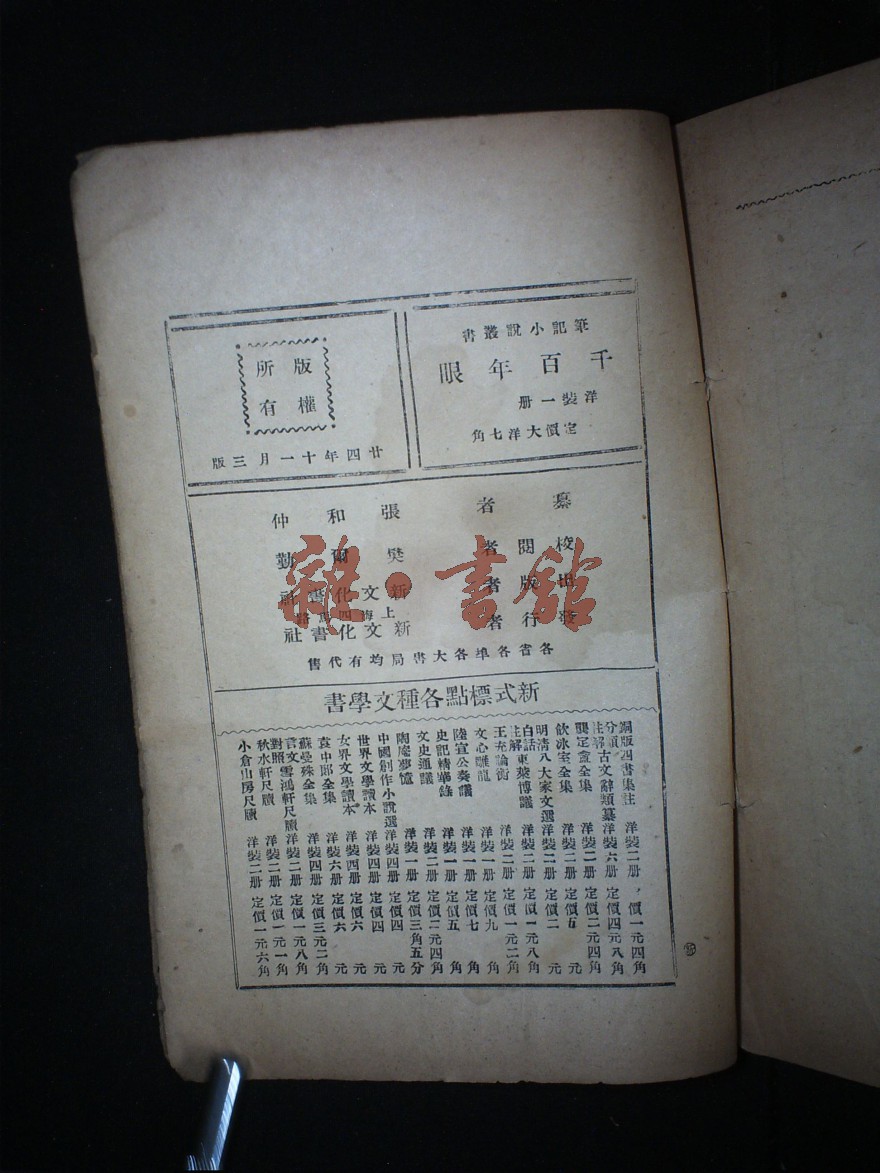 筆記小說叢書
千百年眼
洋裝一册
定價大洋七角
版權所有
廿四年十一月三版
纂者 張和仲
校閱者 樊爾勤
出版者 新文化書社
上海四馬路
發行者 新文化書社
各省各埠各大書局均有代售
雜·書館
新式標點各種文學書
銅版四書集註 洋裝二册 價一元四角
分類註解古文辭類纂 洋裝六册 定價四元八角
龔定盦全集 洋裝二册 定價二元四角
飲冰室全集 洋裝二册 定價五元
明清八大家文選 洋裝二册 定價二元
白話註解東萊博議 洋裝二册 定價一元八角
王充論衡 洋裝二册 定價一元二角
文心雕龍 洋裝一册 定價九角
陸宣公奏議 洋裝一册 定價七角
史記精華錄 洋裝一册 定價五角
文史通議 洋裝二册 定價二元四角
陶庵夢憶 洋裝一册 定價三角五分
中國創作小說選 洋裝四册 定價四元
世界文學讀本 洋裝四册 定價四元
女界文學讀本 洋裝四册 定價六元
袁中郎全集 洋裝六册 定價六元
蘇曼殊全集 洋裝四册 定價三元二角
言文對照雪鴻軒尺牘 洋裝二册 定價一元八角
秋水軒尺牘 洋裝二册 定價一元一角
小倉山房尺牘 洋裝二册 定價一元六角